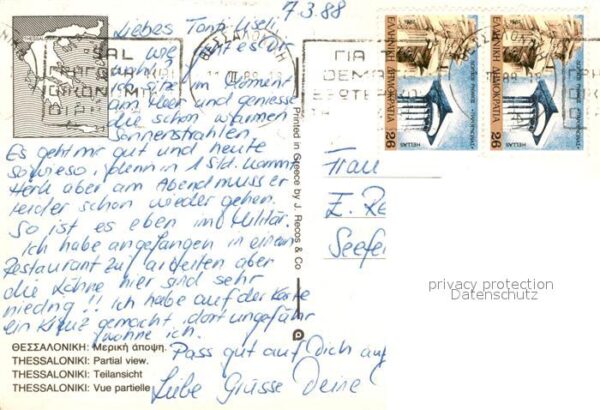 7.3.88
Liebes Tanti Useli
wie geht es dir
im Moment
am Meer und geniesse
die schon warmen
Sonnenstrahlen.
Es geht mir gut und heute
sowieso, denn in 1 Std. kommt
aber am Abend muss er
leider schon wieder gehen.
So ist es eben im Militär.
Ich habe angefangen in einem
Restaurant zu arbeiten aber
die Löhne hier sind sehr
niedrig!! Ich habe auf der Karte
ein Kreuz gemacht, dort ungefähr
wohne ich.
Pass gut auf Dich auf
Liebe Grüsse Deine
ΘΕΣΣΑΛΟΝΙΚΗ: Μερική άποψη.
THESSALONIKI: Partial view.
THESSALONIKI: Teilansicht
THESSALONIKI: Vue partielle
Printed in Greece by J. Recos & Co
ΘΕΣΣΑΛΟΝΙΚΗ
ΓΙΑ
ΕΛΛΗΝΙΚΗ ΔΗΜΟΚΡΑΤΙΑ
HELLAS
26
ΕΛΛΗΝΙΚΗ ΔΗΜΟΚΡΑΤΙΑ
HELLAS
26
Frau
E. Re
Seefe
privacy protection
Datenschutz